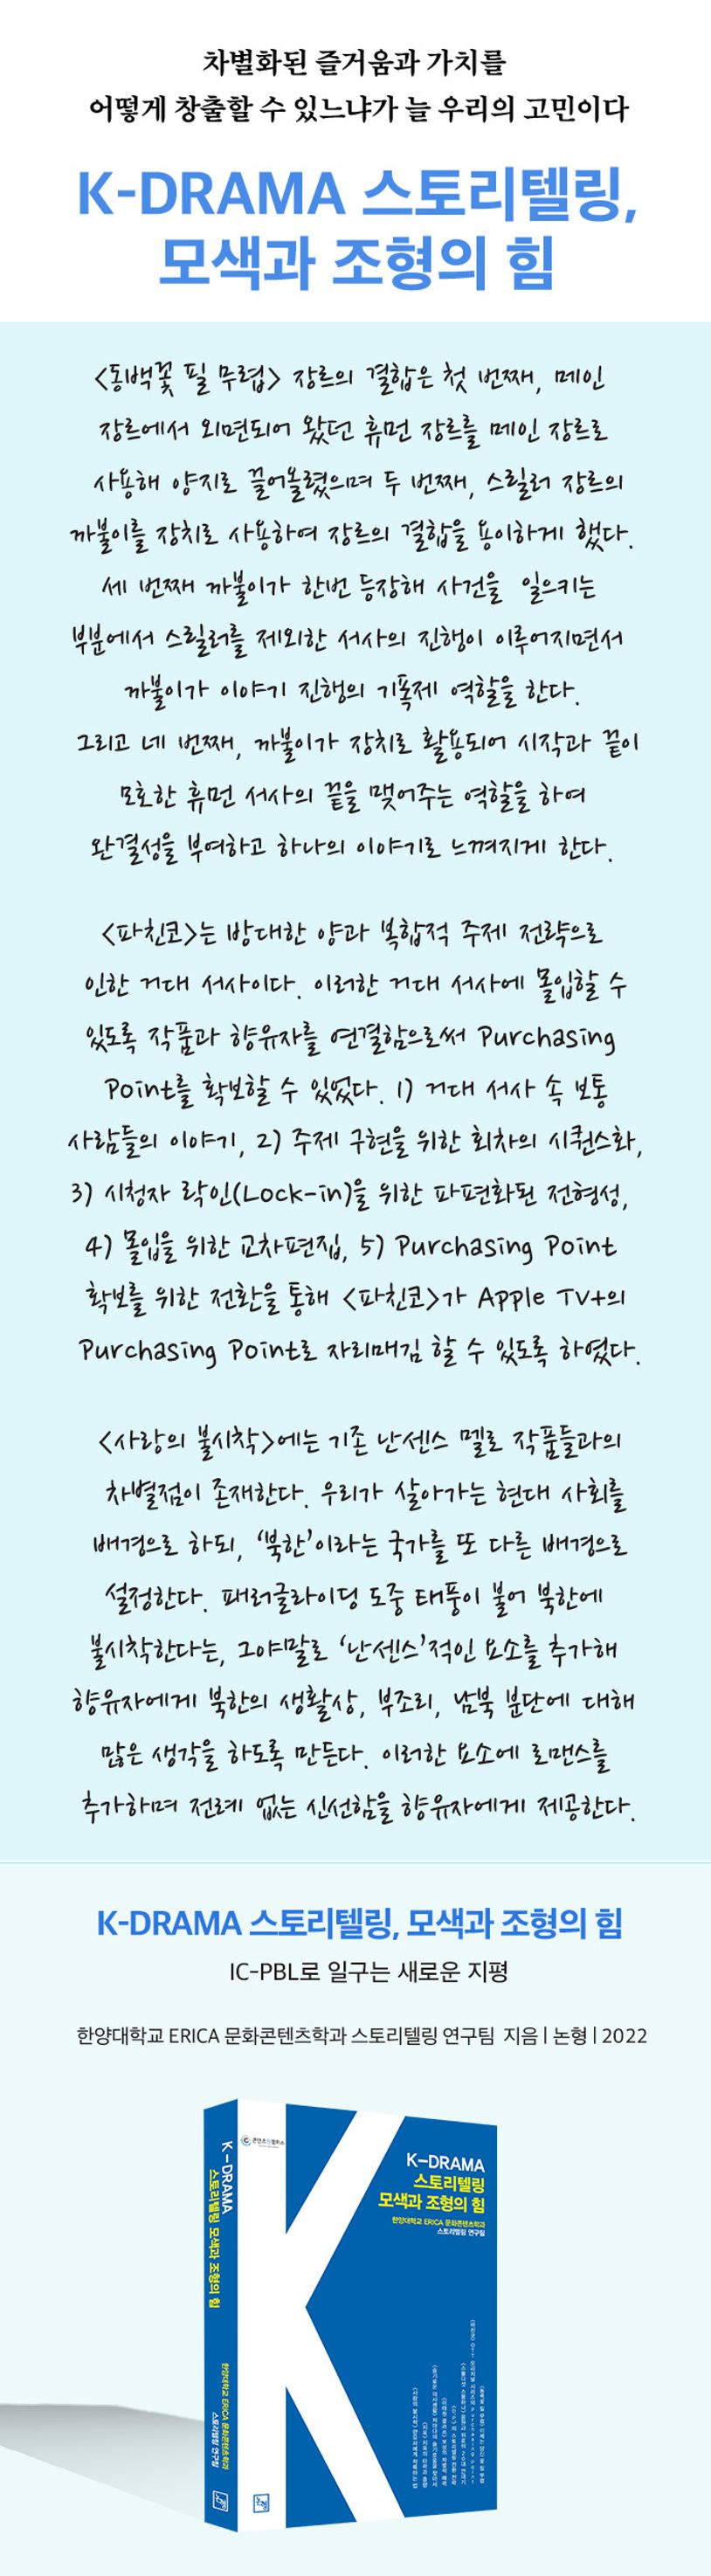 차별화된 즐거움과 가치를
어떻게 창출할 수 있느냐가 늘 우리의 고민이다
K-DRAMA 스토리텔링,
모색과 조형의 힘
<동백꽃 필 무렵> 장르의 결합은 첫 번째, 메인
장르에서 외면되어 왔던 휴먼 장르를 메인 장르로
사용해 양지로 끌어올렸으며 두 번째, 스릴러 장르의
까불이를 장치로 사용하여 장르의 결합을 용이하게 했다.
세 번째 까불이가 한번 등장해 사건을 일으키는
부분에서 스릴러를 제외한 서사의 진행이 이루어지면서
까불이가 이야기 진행의 기폭제 역할을 한다.
그리고 네 번째, 까불이가 장치로 활용되어 시작과 끝이
모호한 휴먼 서사의 끝을 맺어주는 역할을 하여
완결성을 부여하고 하나의 이야기로 느껴지게 한다.
<파친코>는 방대한 양과 복합적 주제 전략으로
인한 거대 서사이다. 이러한 거대 서사에 몰입할 수
있도록 작품과 향유자를 연결함으로써 Purchasing
Point를 확보할 수 있었다. 1) 거대 서사 속 보통
사람들의 이야기, 2) 주제 구현을 위한 회차의 시퀀스화,
3) 시청자 락인(Lock-in)을 위한 파편화된 전형성,
4) 몰입을 위한 교차편집, 5) Purchasing Point
확보를 위한 전환을 통해 <파친코>가 Apple TV+의
Purchasing Point로 자리매김 할 수 있도록 하였다.
<사랑의 불시착>에는 기존 난센스 멜로 작품들과의
차별점이 존재한다. 우리가 살아가는 현대 사회를
배경으로 하되, ‘북한’이라는 국가를 또 다른 배경으로
설정한다. 패러글라이딩 도중 태풍이 불어 북한에
불시착한다는, 그야말로 ‘난센스’적인 요소를 추가해
향유자에게 북한의 생활상, 부조리, 남북 분단에 대해
많은 생각을 하도록 만든다. 이러한 요소에 로맨스를
추가하며 전례 없는 신선함을 향유자에게 제공한다.
K-DRAMA 스토리텔링, 모색과 조형의 힘
IC-PBL로 일구는 새로운 지평
한양대학교 ERICA 문화콘텐츠학과 스토리텔링 연구팀 지음 | 논형 | 2022
K-DRAMA
스토리텔링
모색과 조형의 힘
한양대학교 ERICA 문화콘텐츠학과
스토리텔링 연구팀
K-DRAMA
스토리텔링 모색과 조형의 힘
한양대학교 ERICA 문화콘텐츠학과
스토리텔링 연구팀
논형